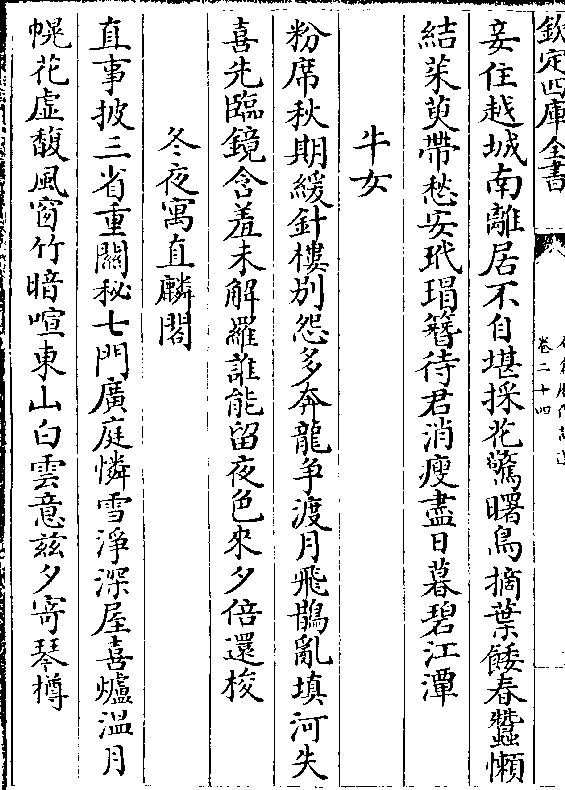 欽定四庫全書
卷二十四
妾住越城南離居不自堪採花驚曙鳥摘葉餧春蠶懶
結茱萸帶愁安玳瑁簪待君消瘦盡日暮碧江潭
牛女
粉席秋期緩針樓别怨多奔龍争渡月飛鵲亂填河失
喜先臨鏡含羞未解羅誰能留夜色來夕倍還梭
冬夜寓直麟閣
直事披三省重關秘七門廣庭憐雪淨深屋喜爐溫月
幌花虛馥風窗竹暗喧東山白雲意兹夕寄琴樽